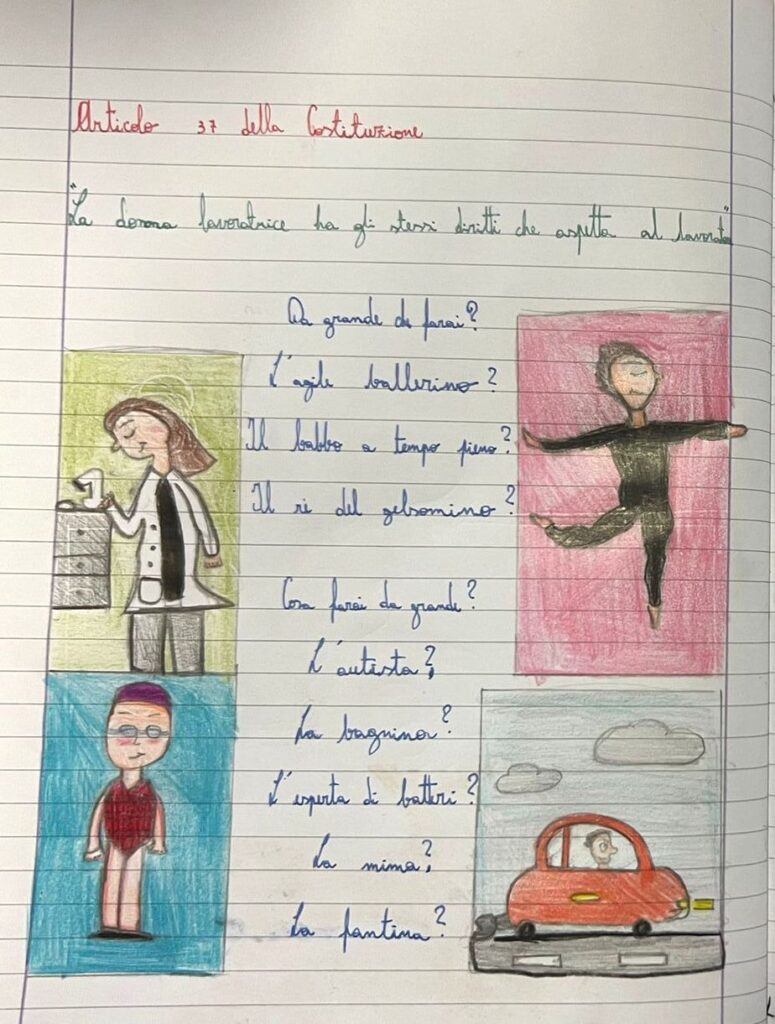 Articolo 37 della Costituzione
"La donna lavoratrice ha gli stessi diritti che aspetta al lavorato"
Da grande che farai?
L'agile ballerino?
Il babbo a tempo pieno?
Il rè del gelsomino?
Cosa farai da grande?
L'autista?
La bagnina?
L'esperta di batteri?
La mima?
La fantina?